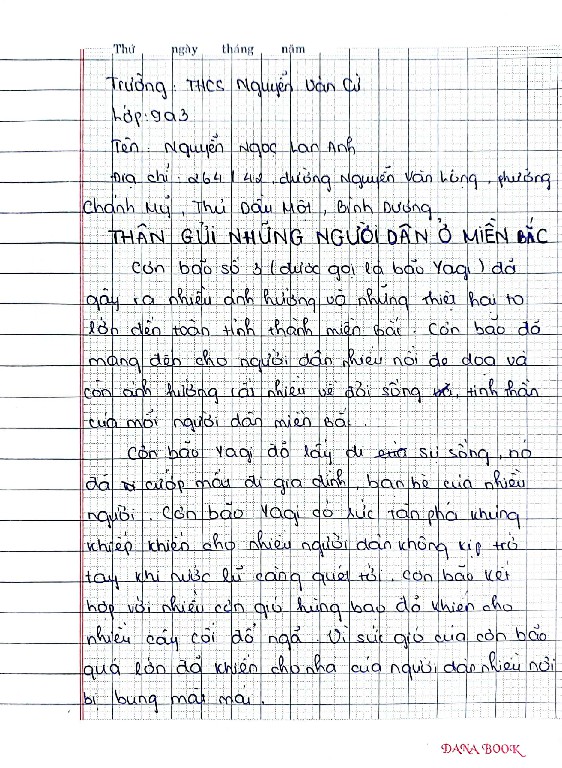 Thứ ngày tháng năm
Trường: THCS Nguyễn Văn Cừ
Lớp: 9a3
Tên: Nguyễn Ngọc Lan Anh
Địa chỉ: 264/42, đường Nguyễn Văn Lồng, phường
Chánh Mỹ, Thủ Dầu Một, Bình Dương
THÂN GỬI NHỮNG NGƯỜI DÂN Ở MIỀN BẮC
Cơn bão số 3 (được gọi là bão Yagi) đã
gây ra nhiều ảnh hưởng và những thiệt hại to
lớn đến toàn tỉnh thành miền Bắc. Cơn bão đã
mang đến cho người dân nhiều nỗi đe doạ và
còn ảnh hưởng rất nhiều về đời sống, tinh thần
của mỗi người dân miền Bắc.
Cơn bão Yagi đã lấy đi sự sống, nó
đã cướp mất đi gia đình, bạn bè của nhiều
người. Cơn bão Yagi có sức tàn phá khủng
khiếp khiến cho nhiều người dân không kịp trở
tay khi nước lũ càng quét tới. Cơn bão kết
hợp với nhiều cơn gió hung bạo đã khiến cho
nhiều cây cối đổ ngã. Vì sức gió của cơn bão
quá lớn đã khiến cho nhà của người dân nhiều nơi
bị bung mất mái.
DANA BOOK